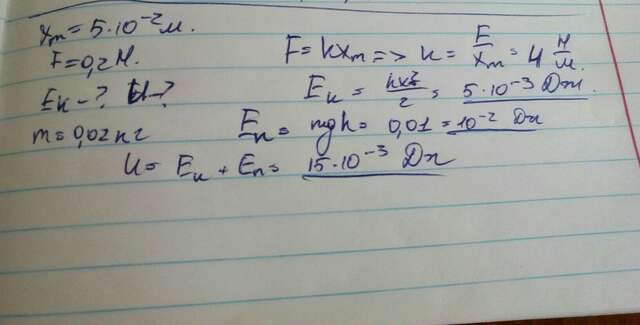 xm = 5·10⁻² м.
F = 0,2 Н.
Eк - ? U - ?
m = 0,02 кг
F = kxm => k = F/xm = 4 Н/м.
Eк = kx²/2 = 5·10⁻³ Дж.
Eп = mgh = 0,01 = 10⁻² Дж
U = Eк + Eп = 15·10⁻³ Дж